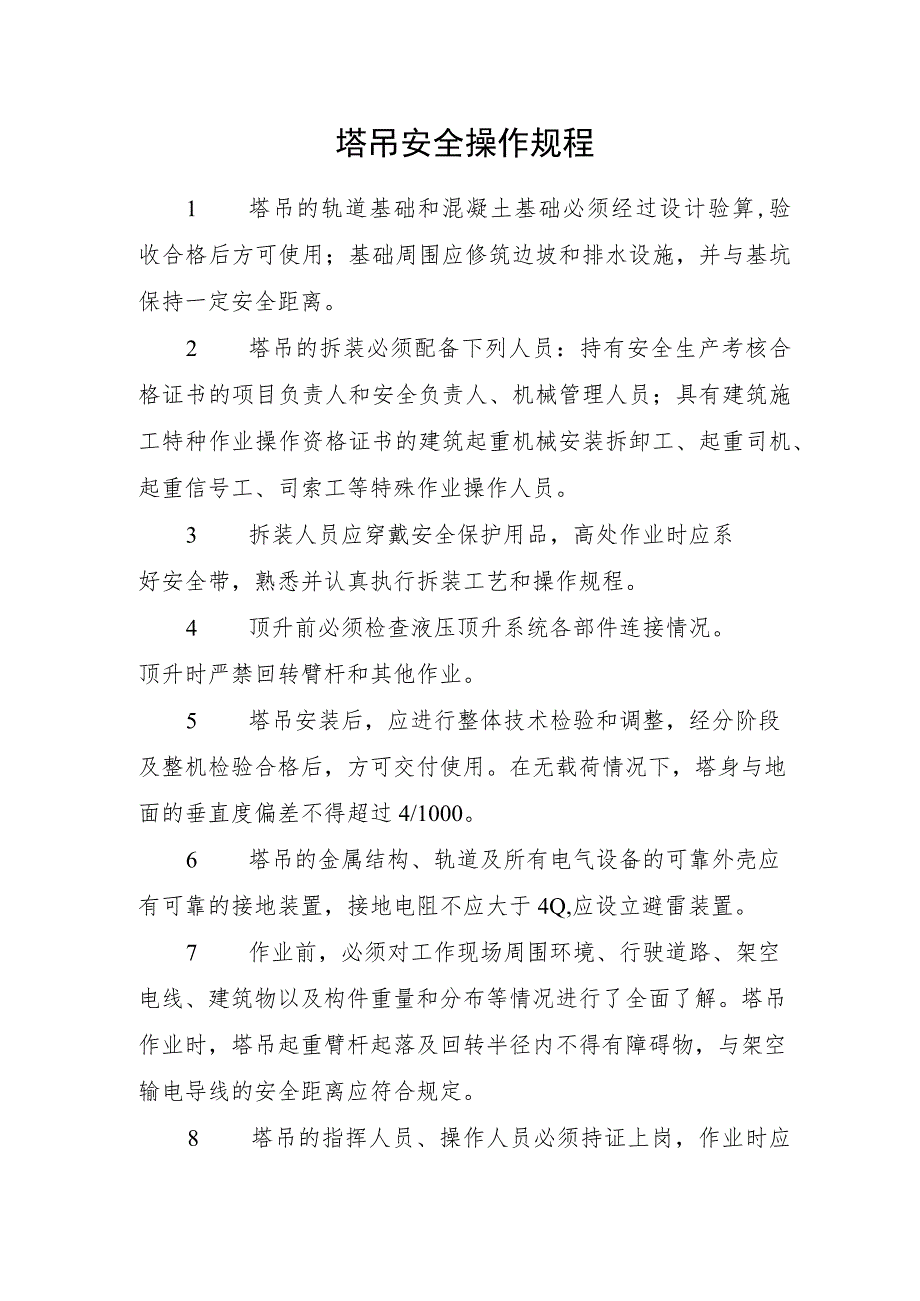 塔吊安全操作规程
1 塔吊的轨道基础和混凝土基础必须经过设计验算,验
收合格后方可使用；基础周围应修筑边坡和排水设施，并与基坑
保持一定安全距离。
2 塔吊的拆装必须配备下列人员：持有安全生产考核合
格证书的项目负责人和安全负责人、机械管理人员；具有建筑施
工特种作业操作资格证书的建筑起重机械安装拆卸工、起重司机、
起重信号工、司索工等特殊作业操作人员。
3 拆装人员应穿戴安全保护用品，高处作业时应系
好安全带，熟悉并认真执行拆装工艺和操作规程。
4 顶升前必须检查液压顶升系统各部件连接情况。
顶升时严禁回转臂杆和其他作业。
5 塔吊安装后，应进行整体技术检验和调整，经分阶段
及整机检验合格后，方可交付使用。在无载荷情况下，塔身与地
面的垂直度偏差不得超过 4/1000。
6 塔吊的金属结构、轨道及所有电气设备的可靠外壳应
有可靠的接地装置，接地电阻不应大于 4Q,应设立避雷装置。
7 作业前，必须对工作现场周围环境、行驶道路、架空
电线、建筑物以及构件重量和分布等情况进行了全面了解。塔吊
作业时，塔吊起重臂杆起落及回转半径内不得有障碍物，与架空
输电导线的安全距离应符合规定。
8 塔吊的指挥人员、操作人员必须持证上岗，作业时应